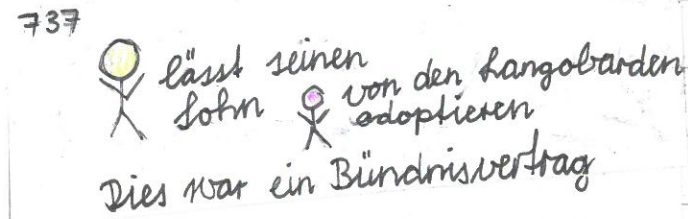 737
lässt seinen
Sohn von den Langobarden
adoptieren
Dies war ein Bündnisvertrag